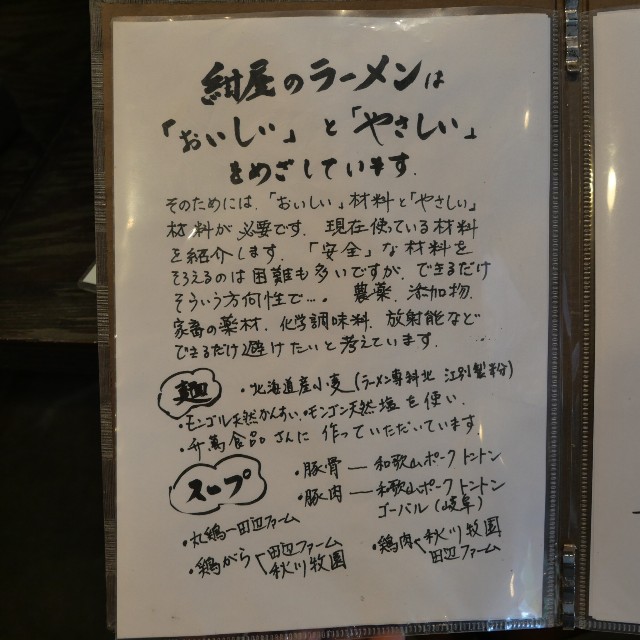 紺屋のラーメンは
「おいしい」と「やさしい」
をめざしています.
そのためには、「おいしい」材料と「やさしい」
材料が必要です. 現在使っている材料
を紹介します. 「安全」な材料を
そろえるのは困難も多いですが、できるだけ
そういう方向性で…。 農薬. 添加物.
家畜の薬材. 化学調味料. 放射能など
できるだけ避けたいと考えています.
麺 ・北海道産小麦(ラーメン専科北 江別製粉)
・モンゴル天然かんすい、・モンゴン天然塩を使い.
・千蔦食品さんに作っていただいています
スープ ・豚骨 ― 和歌山ポーク トントン
・豚肉 ― 和歌山ポーク トントン
ゴーバル(岐阜)
・丸鶏 ― 田辺ファーム
・鶏がら 田辺ファーム 秋川牧園
・鶏肉 秋川牧園 田辺ファーム